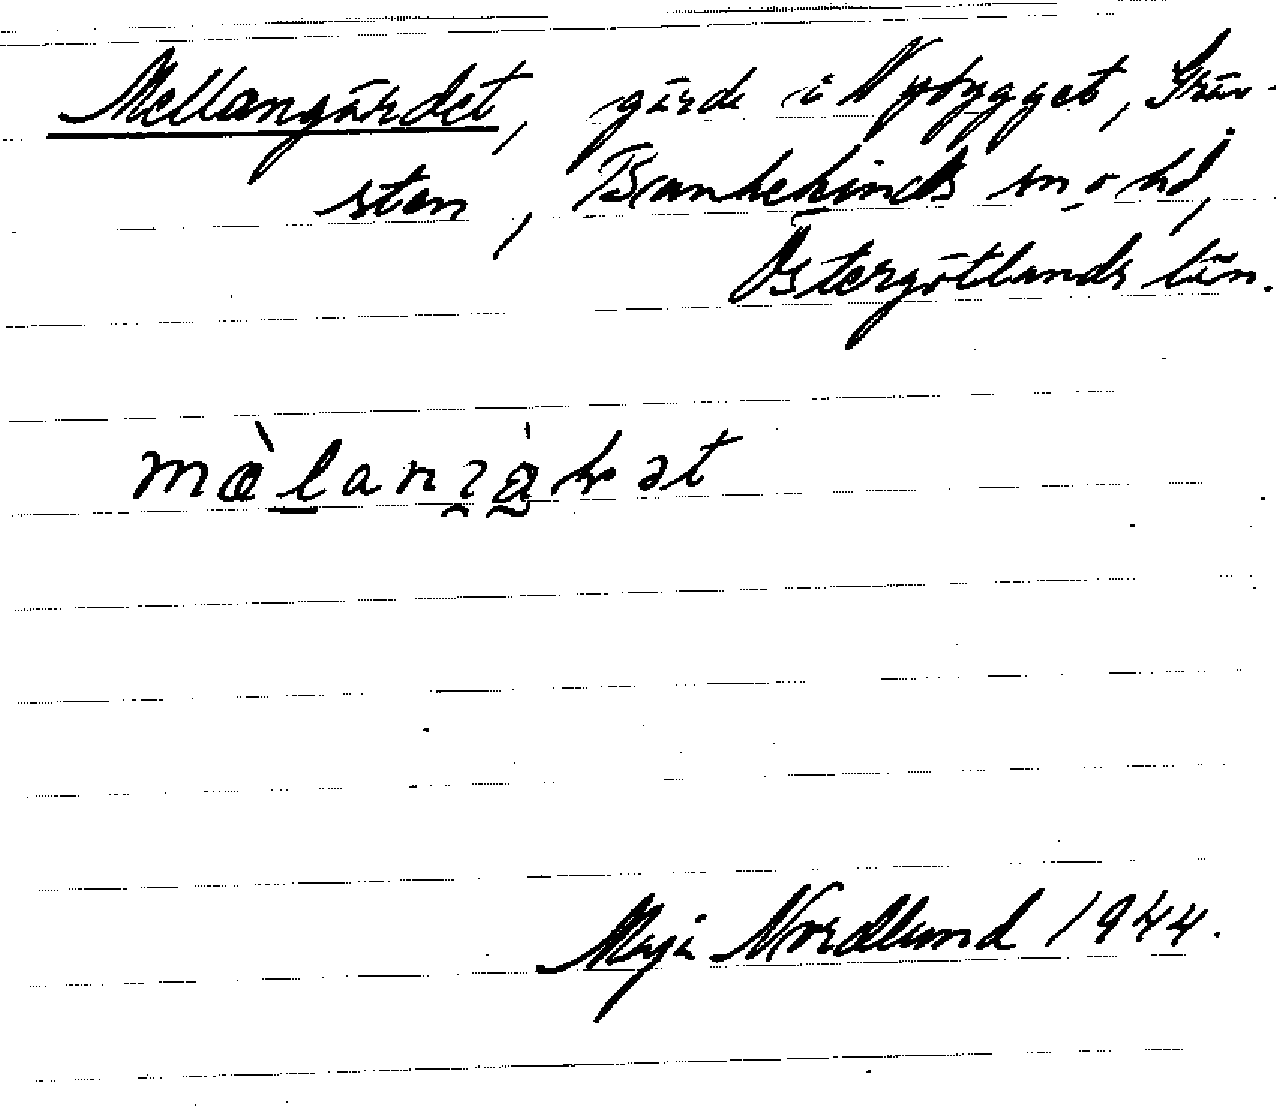 Mellangärdet, gärde i Nybygget, Gräv-
sten, Bankekinds sn o hd,
Östergötlands län.
Maja Nordlund 1944.